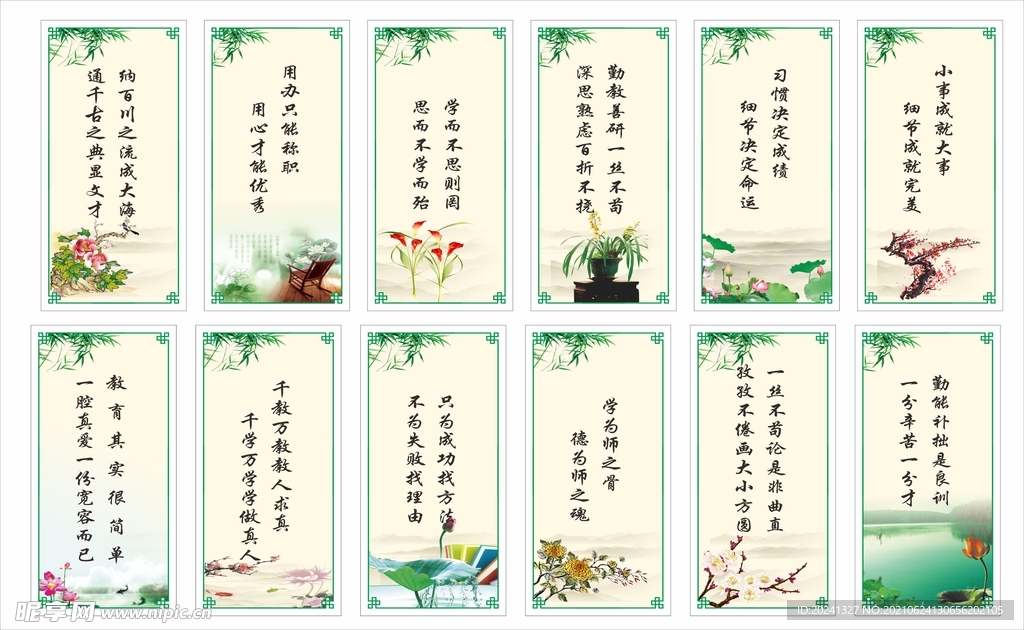 纳百川之流成大海
通千古之典显文才
用办只能称职
用心才能优秀
学而不思则罔
思而不学而殆
勤教善研一丝不苟
深思熟虑百折不挠
习惯决定成绩
细节决定命运
小事成就大事
细节成就完美
教育其实很简单
一腔真爱一份宽容而已
千教万教教人求真
千学万学学做真人
只为成功找方法
不为失败找理由
学为师之骨
德为师之魂
一丝不苟论是非曲直
孜孜不倦画大小方圆
勤能补拙是良训
一分辛苦一分才
昵享网 www.nipic.cn
ID:20241327 NO:20210624130656202105